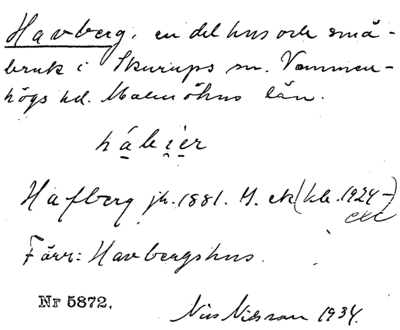 Havberg, en del hus och små-
bruk i Skurups sn. Vemmen-
högs hd. Malmöhus län.
håbier
Hafberg jb. 1881. H. ek (kb. 1924-)
Förr: Havbergshus.
Nr 5872. Nils Nilsson 1934.